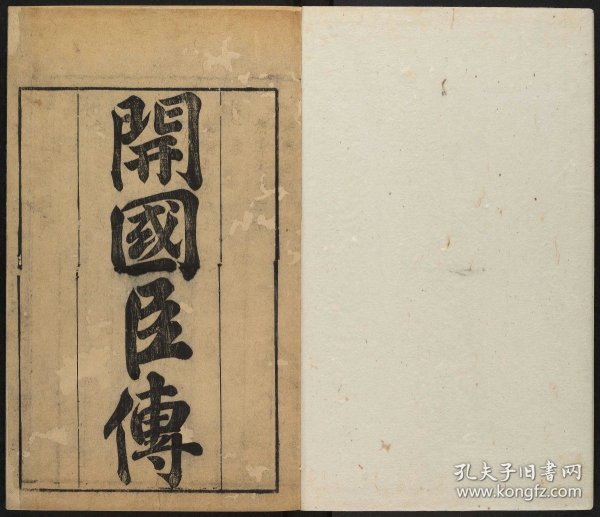 開國臣傳
孔夫子旧書网
www.kongfz.com